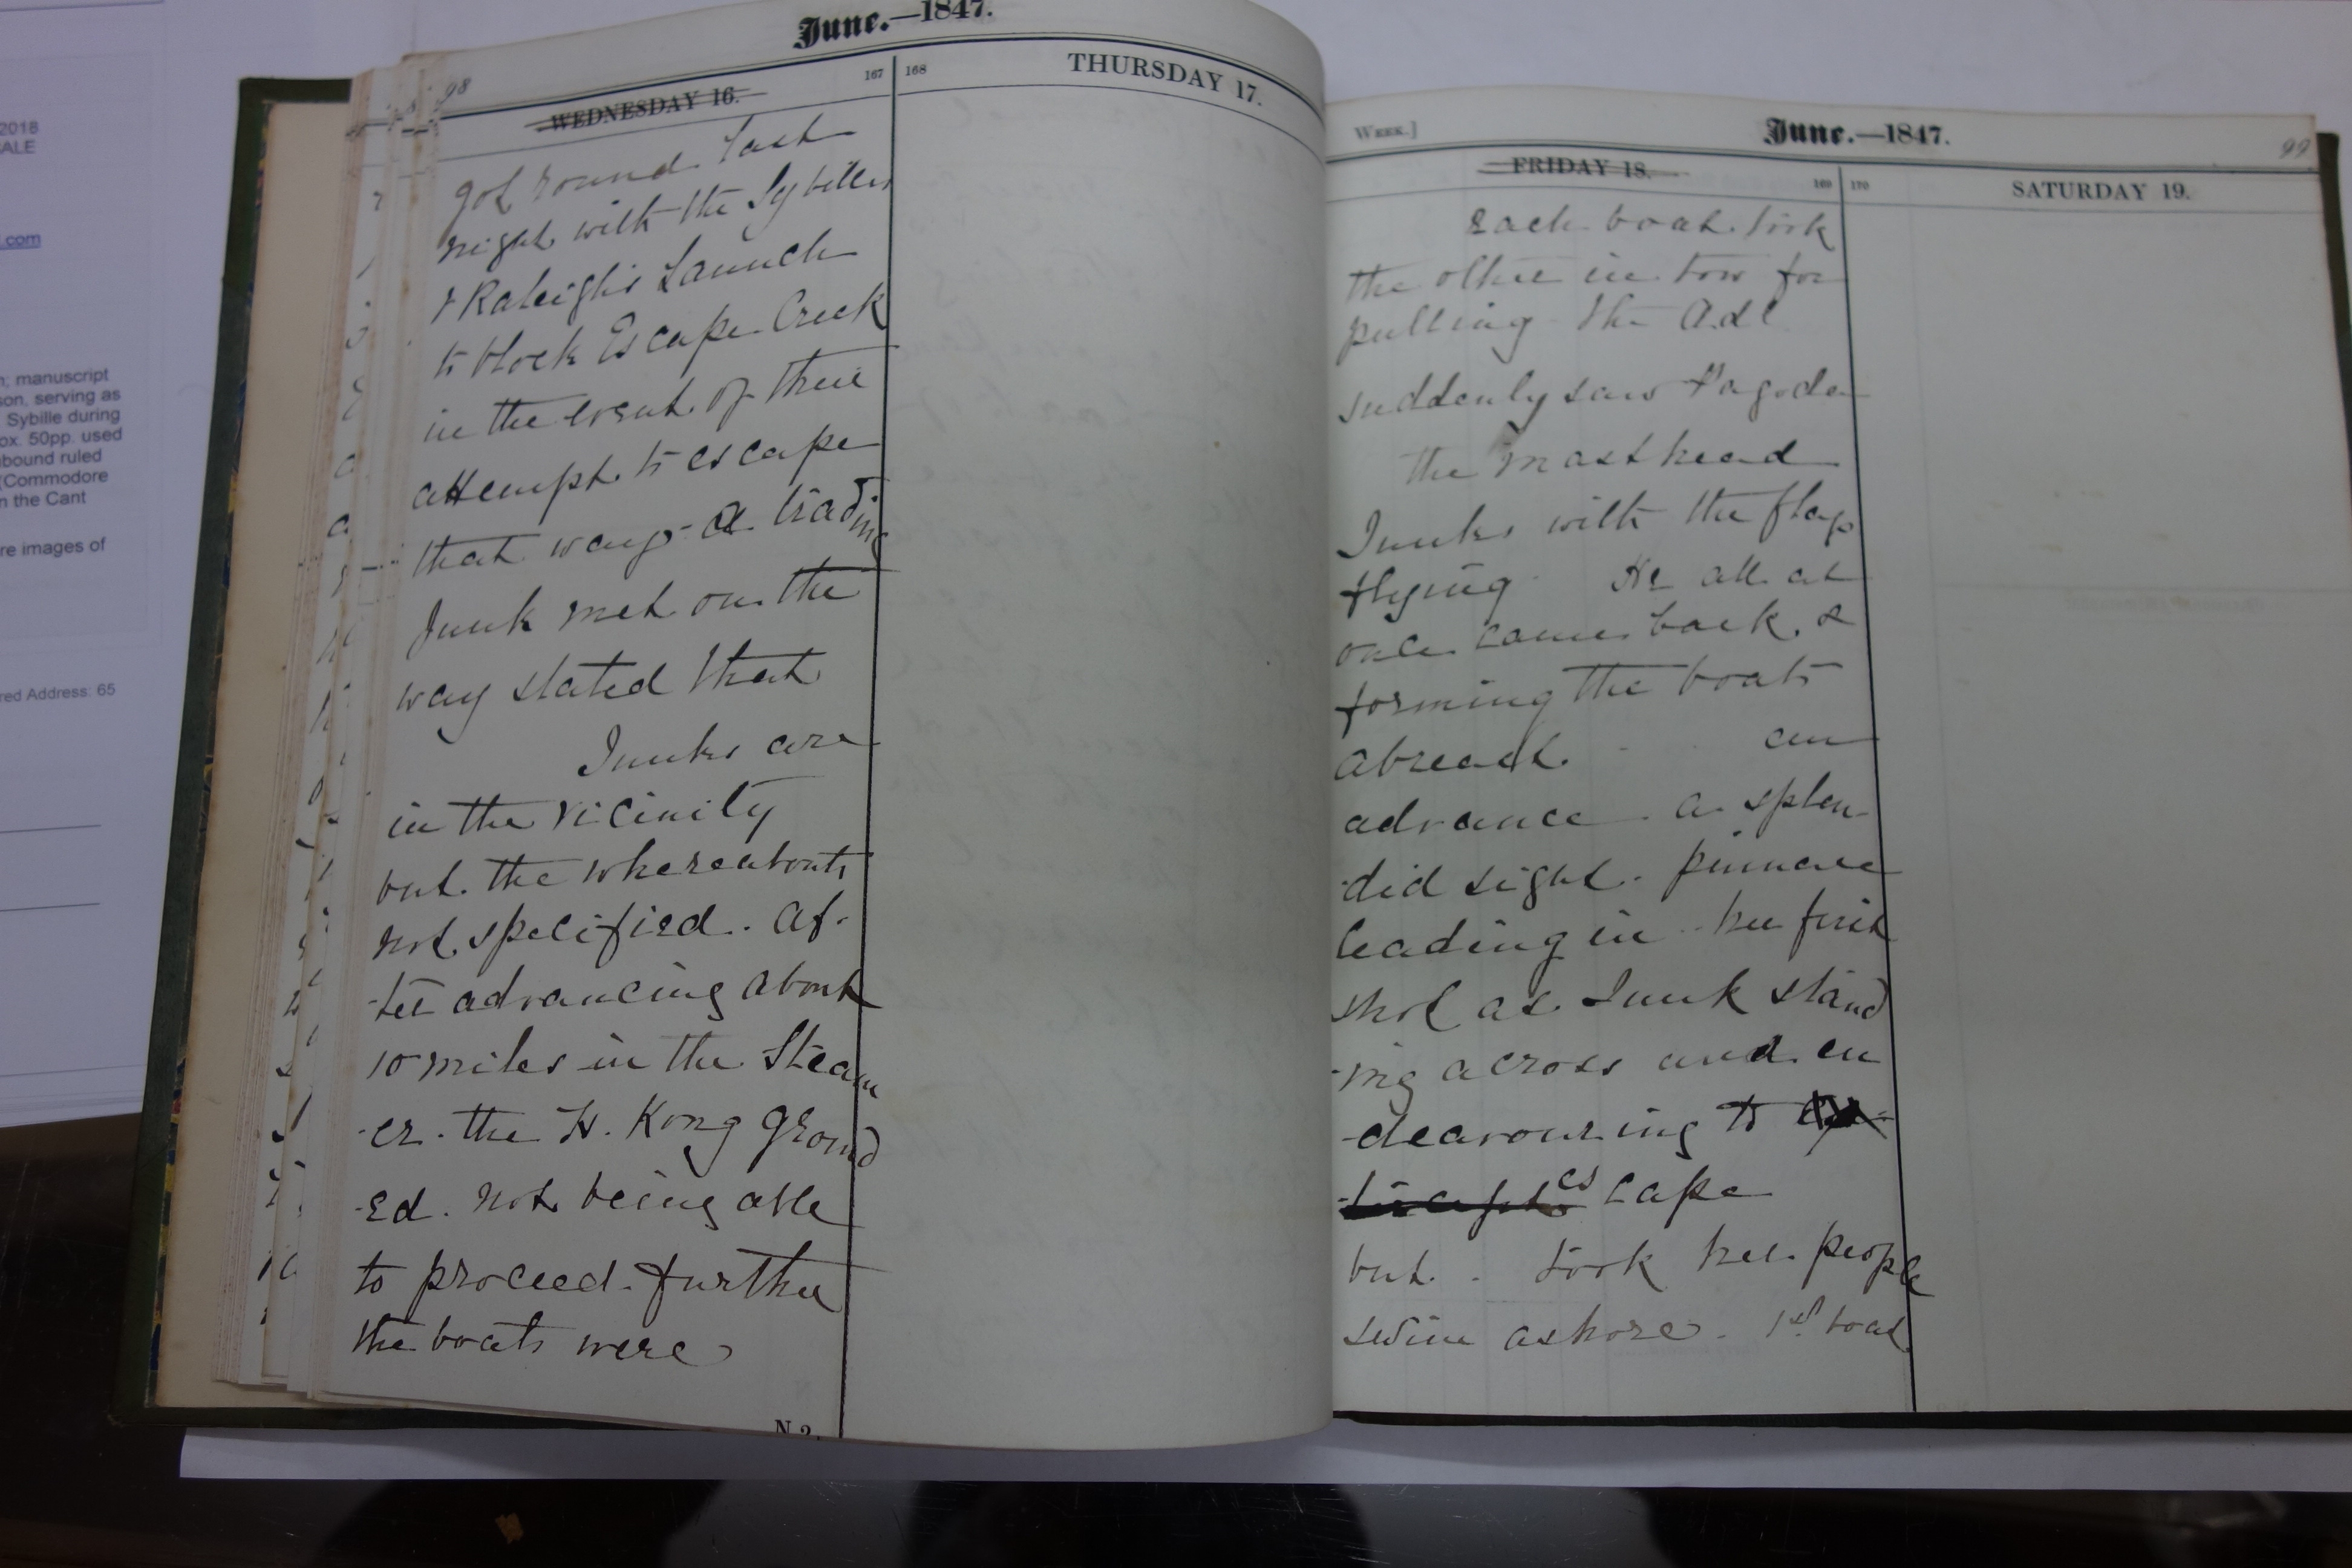 2018
ALE
.com
n; manuscript
son, serving as
Sybille during
ox. 50pp. used
nbound ruled
(Commodore
n the Cant
re images of
red Address: 65
June.—1847.
98
167
WEDNESDAY 16.
got round last
night with the Sybilles
& Raleigh's Launch
to block Escape Creek
in the event of their
attempt to escape
that way - a trading
Junk met on the
way stated that
Junks are
in the vicinity
but the whereabouts
not specified. Af-
-ter advancing about
10 miles in the Steam
-er. the H. Kong ground
-ed. not being able
to proceed further
the boats were
N 2.
168
THURSDAY 17.
WEEK.]
June.—1847.
99
FRIDAY 18.
169
each boat took
the other in tow for
pulling the Adl
suddenly saw Pagoda
the masthead
Junks with the flags
flying He all at
once came back &
forming the boats
abreast. an
advance a splen-
-did sight. pinnace
leading in her first
shot at Junk stand
-ing across and en
-deavouring to
escape
but. took her people
swim ashore. 1st. boat
170
SATURDAY 19.